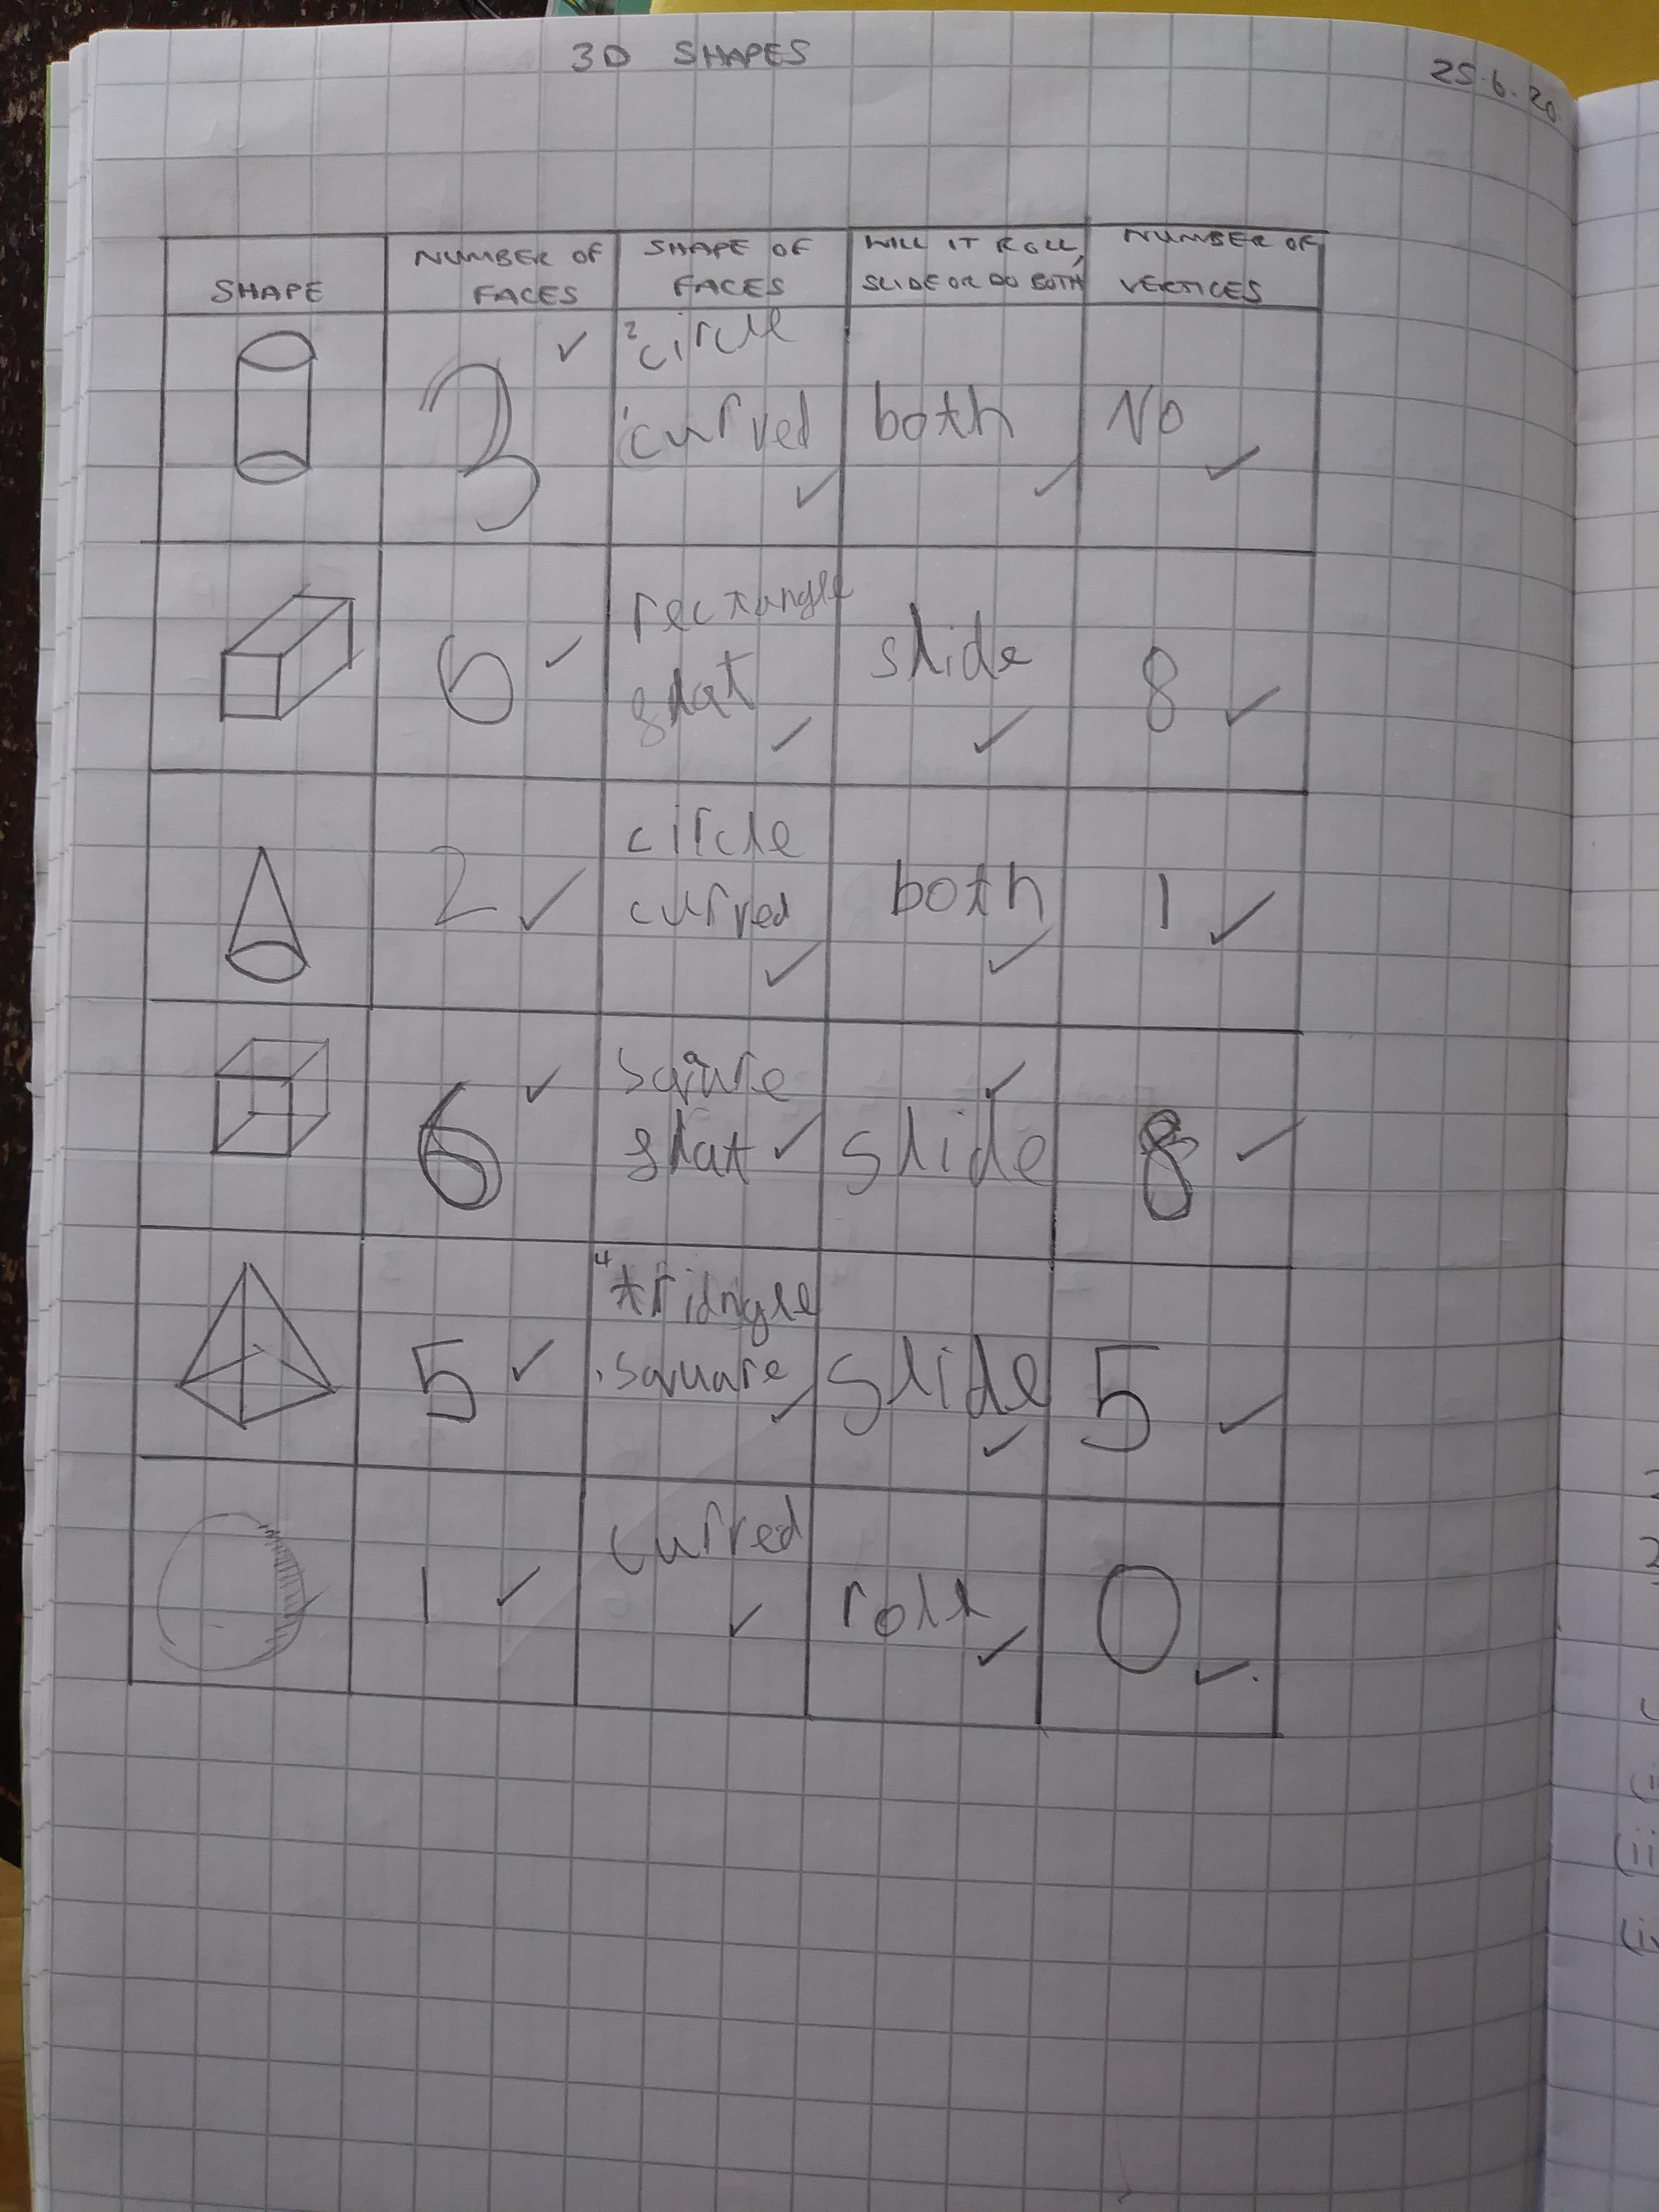 3D SHAPES
25.6.20
SHAPE
NUMBER OF
FACES
SHAPE OF
FACES
WILL IT ROLL,
SLIDE OR DO BOTH
NUMBER OF
VERTICES
3
2 circle
1 curved
both
NO
6
rectangle
flat
slide
8
2
circle
curved
both
1
6
sqaure
flat
slide
8
5
4 triangle
1 square
slide
5
1
curved
roll
0
(ii